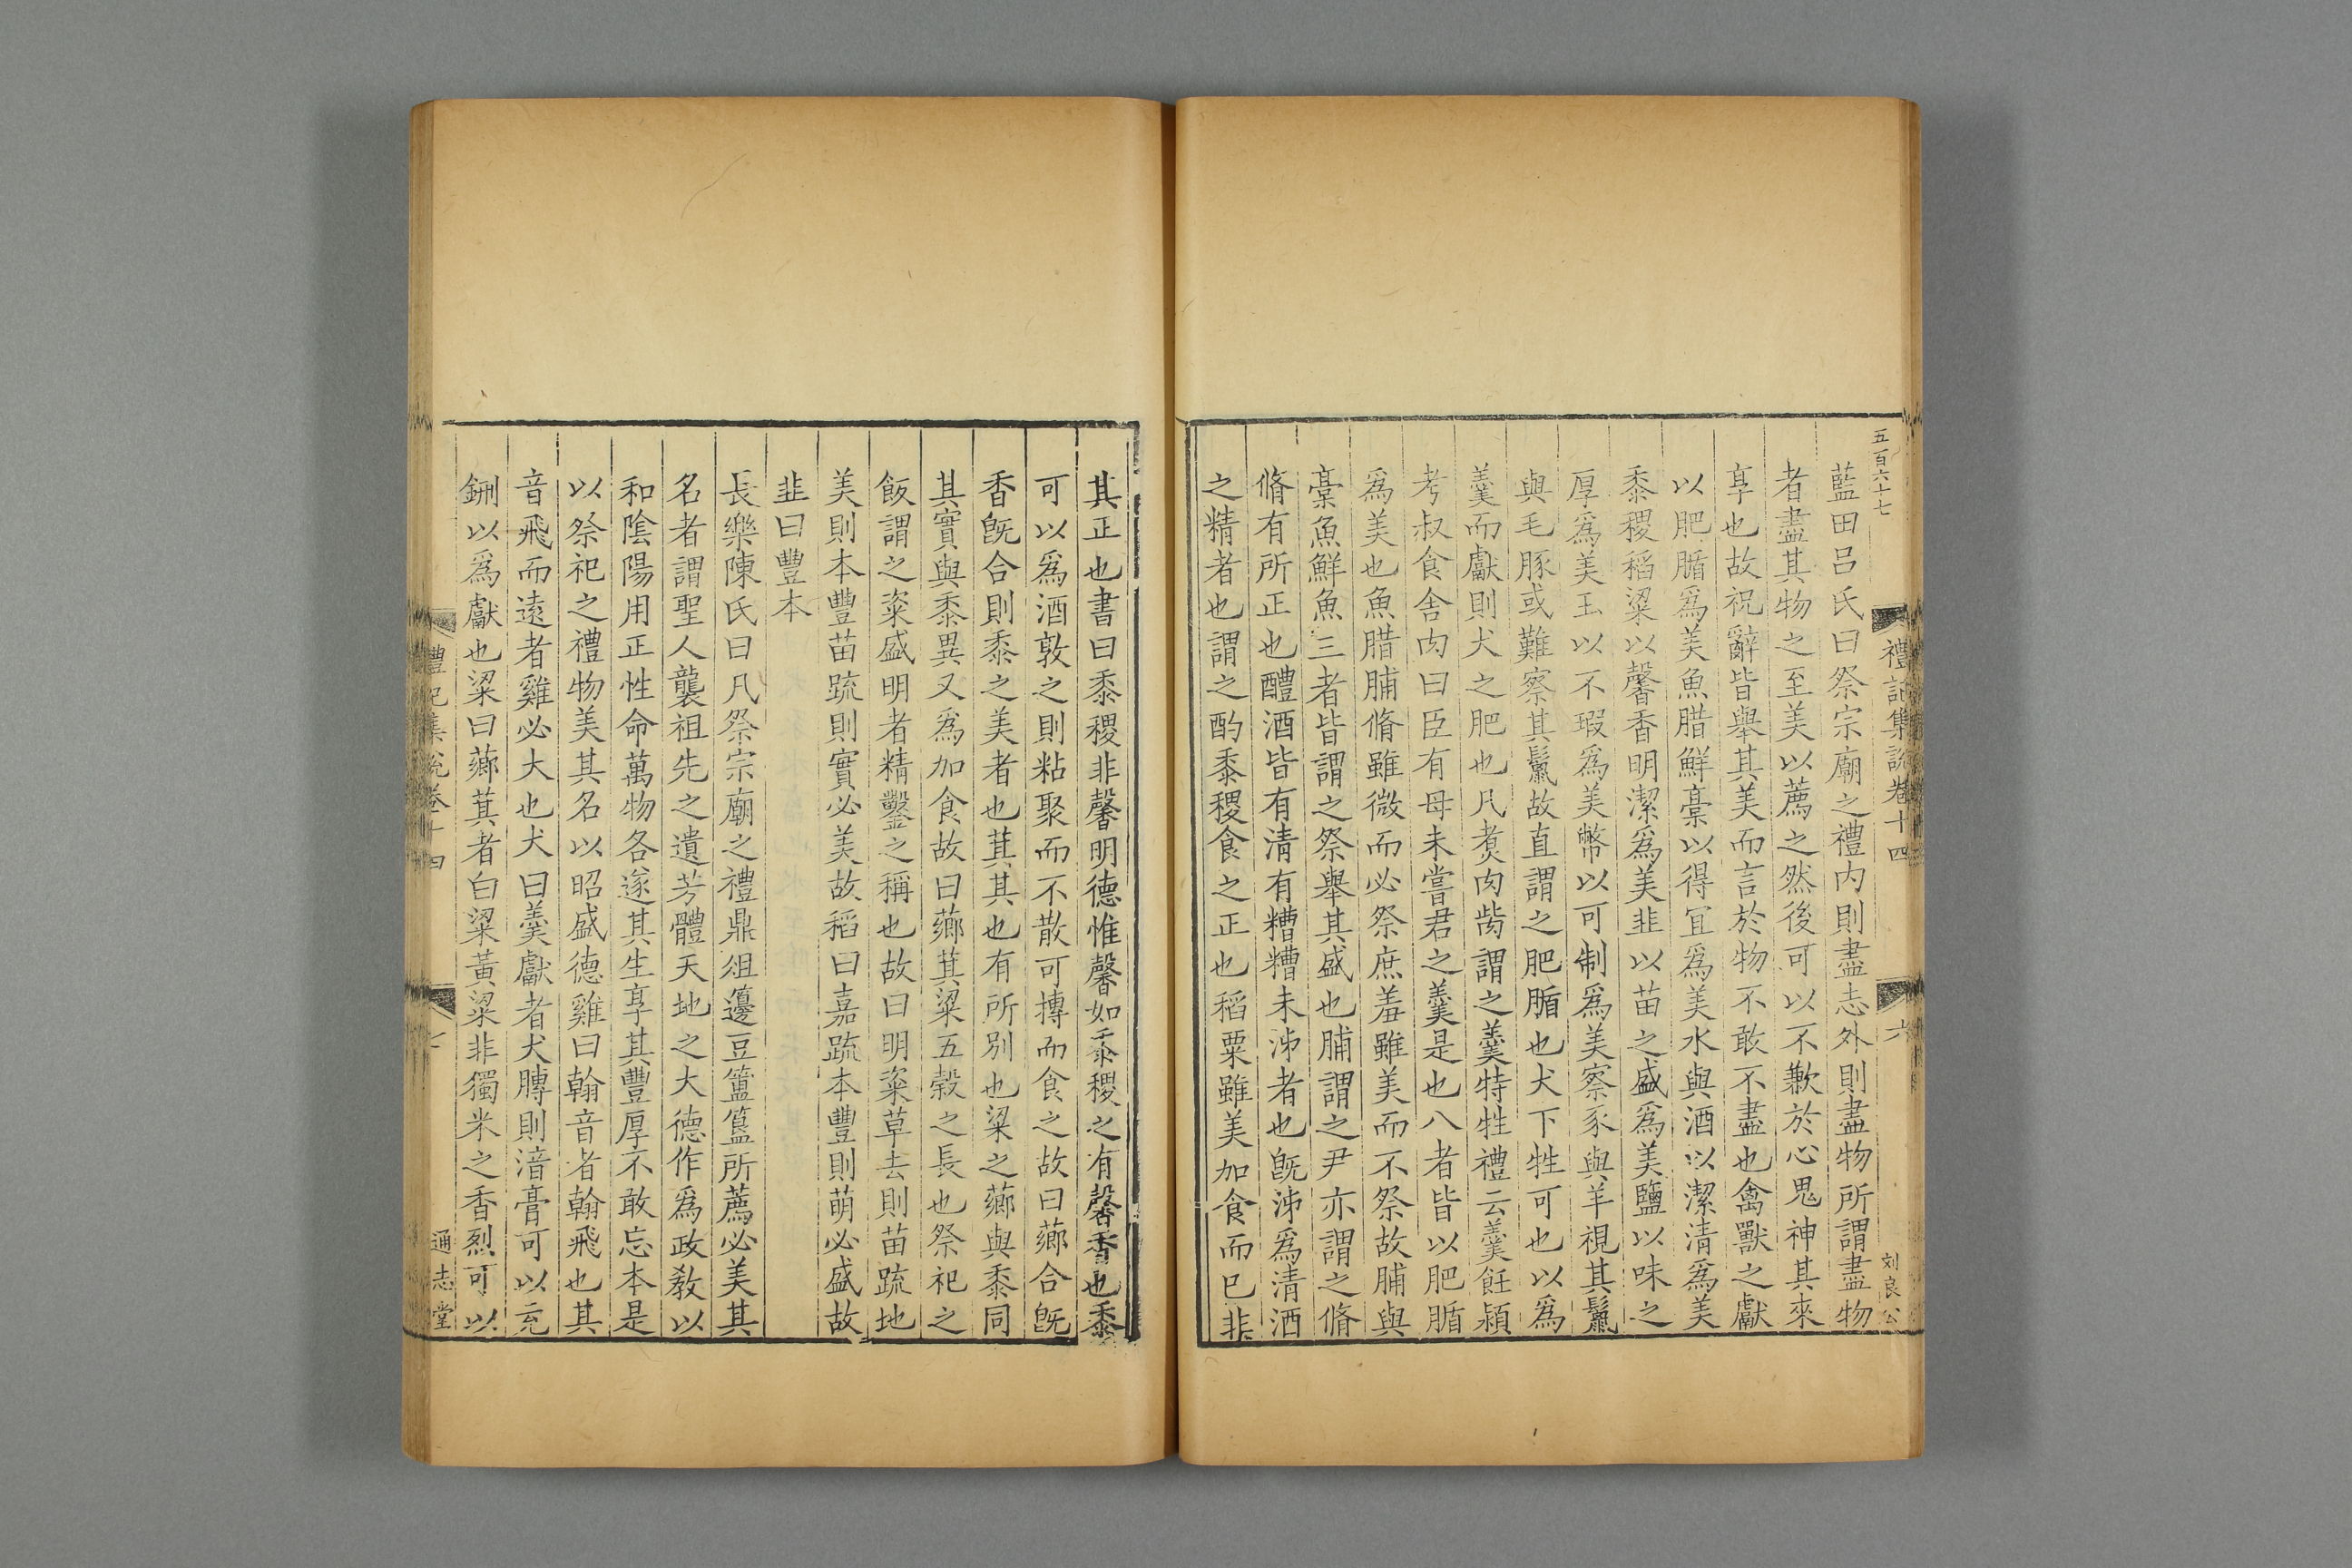 五百六十七
禮記集說卷十四
六
刘良公
藍田吕氏曰祭宗廟之禮内則盡志外則盡物所謂盡物
者盡其物之至美以薦之然後可以不歉於心鬼神其來
享也故祝辭皆舉其美而言於物不敢不盡也禽獸之獻
以肥腯爲美魚腊鮮槀以得宜爲美水與酒以潔清爲美
黍稷稻粱以馨香明潔爲美韭以苗之盛爲美鹽以味之
厚爲美玉以不瑕爲美幣以可制爲美察豕與羊視其鬛
與毛豚或難察其鬛故直謂之肥腯也犬下牲可也以爲
羹而獻則犬之肥也凡煑肉皆謂之羹特牲禮云羹飪潁
考叔食舍肉曰臣有母未嘗君之羹是也八者皆以肥腯
爲美也魚腊脯脩雖微而必祭庶羞雖美而不祭故脯與
槀魚鮮魚三者皆謂之祭舉其盛也脯謂之尹亦謂之脩
脩有所正也醴酒皆有清有糟糟未泲者也旣泲爲清酒
之精者也謂之酌黍稷食之正也稻粟雖美加食而已非
其正也書曰黍稷非馨明德惟馨如黍稷之有馨香也黍
可以爲酒敦之則粘聚而不散可摶而食之故曰薌合旣
香旣合則黍之美者也萁其也有所別也粱之薌與黍同
其實與黍異又爲加食故曰薌萁粱五榖之長也祭祀之
飯謂之粢盛明者精鑿之稱也故曰明粢草去則苗疏地
美則本豐苗疏則實必美故稻曰嘉疏本豐則萌必盛故
韭曰豐本
長樂陳氏曰凡祭宗廟之禮鼎俎籩豆簠簋所薦必美其
名者謂聖人襲祖先之遺芳體天地之大德作爲政教以
和陰陽用正性命萬物各遂其生享其豐厚不敢忘本是
以祭祀之禮物美其名以昭盛德雞曰翰音者翰飛也其
音飛而遠者雞必大也犬曰羹獻者犬膊則湆膏可以充
鉶以爲獻也粱曰薌萁者白粱黃粱非獨米之香烈可以
禮記集說卷十四
七
通志堂